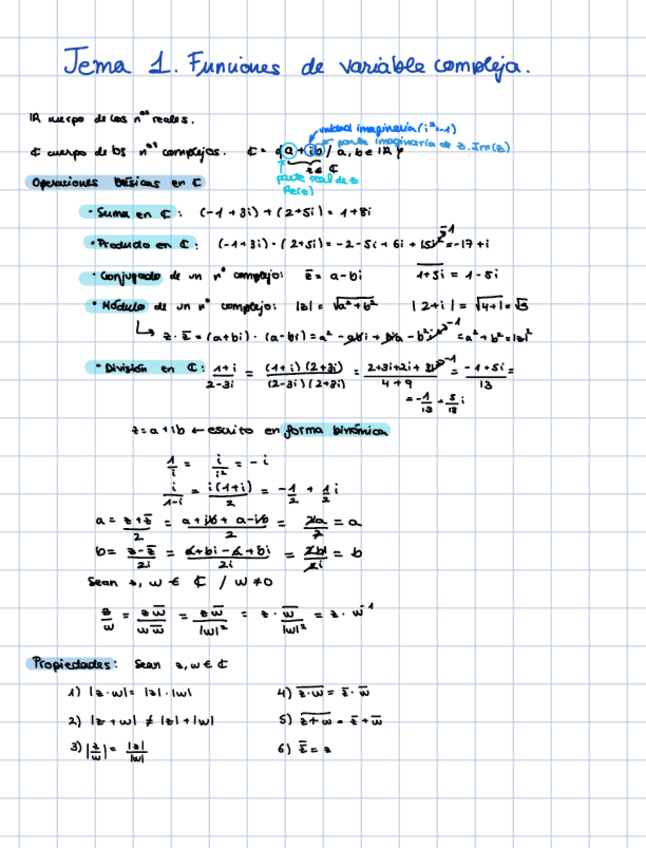 Tema 1. Funciones de variable compleja.
IR cuerpo de los nºs reales.
unidad imaginaria (i²=-1)
parte imaginaria de z. Im(z)
ℂ cuerpo de los nºs complejos. ℂ = {a+ib / a, b ∈ IR}
z ∈ ℂ
parte real de z
Re(z)
Operaciones básicas en ℂ
· Suma en ℂ: (-1+3i)+(2+5i) = 1+8i
· Producto en ℂ: (-1+3i)·(2+5i) = -2-5i+6i+15i² = -17+i
-1
· Conjugado de un nº complejo: z̅ = a-bi \overline{1+5i} = 1-5i
· Módulo de un nº complejo: |z| = √(a²+b²) |2+i| = √(4+1) = √5
↳ z·z̅ = (a+bi)·(a-bi) = a² - abi + bia - b²i² = a²+b² = |z|²
-1
· División en ℂ: (1+i)/(2-3i) = ((1+i)(2+3i))/((2-3i)(2+3i)) = (2+3i+2i+3i²)/(4+9) = (-1+5i)/13 =
-1
= -1/13 + 5/13 i
z = a+ib ← escrito en forma binómica
1/i = i/i² = -i
i/(1-i) = i(1+i)/2 = -1/2 + 1/2 i
a = (z+z̅)/2 = (a+ib+a-ib)/2 = 2a/2 = a
b = (z-z̅)/2i = (a+bi-a+bi)/2i = 2bi/2i = b
Sean z, w ∈ ℂ / w ≠ 0
z/w = z w̅/w w̅ = z w̅/|w|² = z · w̅/|w|² = z · w⁻¹
Propiedades: Sean z, w ∈ ℂ
1) |z·w| = |z|·|w|
4) \overline{z·w} = z̅·w̅
2) |z+w| ≠ |z|+|w|
5) \overline{z+w} = z̅+w̅
3) |z/w| = |z|/|w|
6) \overline{z̅} = z